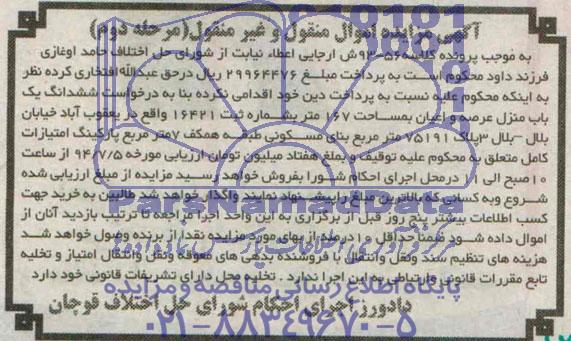 آگهی مزایده اموال منقول و غیر منقول(مرحله دوم)
به موجب پرونده کلاسه ش ارجایی اعطاء نیابت از شورای حل اختلاف حامد اوغازی
فرزند داود محکوم است به پرداخت مبلغ ۲۹۹۶۴۴۷۶ ریال درحق عبدالله افتخاری کرده نظر
به اینکه محکوم علیه نسبت به پرداخت دین خود اقدامی نکرده بنا به درخواست ششدانگ یک
باب منزل عرصه و اعیان بمساحت ۱۶۷ متر بشماره ثبت ۱۶۴۲۱ واقع در یعقوب آباد خیابان
بلال -بلال ۳پلاک ۷۵۱۹۱ متر مربع بنای مسکونی طبقه همکف ۷متر مربع پارکینگ امتیازات
کامل متعلق به محکوم علیه توقیف و بمبلغ هفتاد میلیون تومان ارزیابی مورخه ۹۴/۷/۵ از ساعت
۱۰ صبح الی ۱۱ درمحل اجرای احکام شورا بفروش خواهد رسید مزایده از مبلغ ارزیابی شده
شروع وبه کسانی که بالاترین مبلغ را پیشنهاد نمایند واگذار خواهد شد طالبین به خرید جهت
کسب اطلاعات بیشتر پنج روز قبل از برگزاری به این واحد اجرا مراجعه تا ترتیب بازدید آنان از
اموال داده شود ضمنا حداقل ۱۰ درصد از بهای مورد مزایده نقدا از برنده وصول خواهد شد
هزینه های تنظیم سند ونقل وانتقال با فروشنده بدهی های معوقه ونقل وانتقال امتیاز و تخلیه
تابع مقررات قانونی وارتباطی به این اجرا ندارد . تخلیه محل دارای تشریفات قانونی خود دارد
دادورز اجرای احکام شورای حل اختلاف قوچان
ParsNamadData
پایگاه اطلاع رسانی مناقصه و مزایده
۰۲۱-۸۸۳۴۹۶۷۰-۵